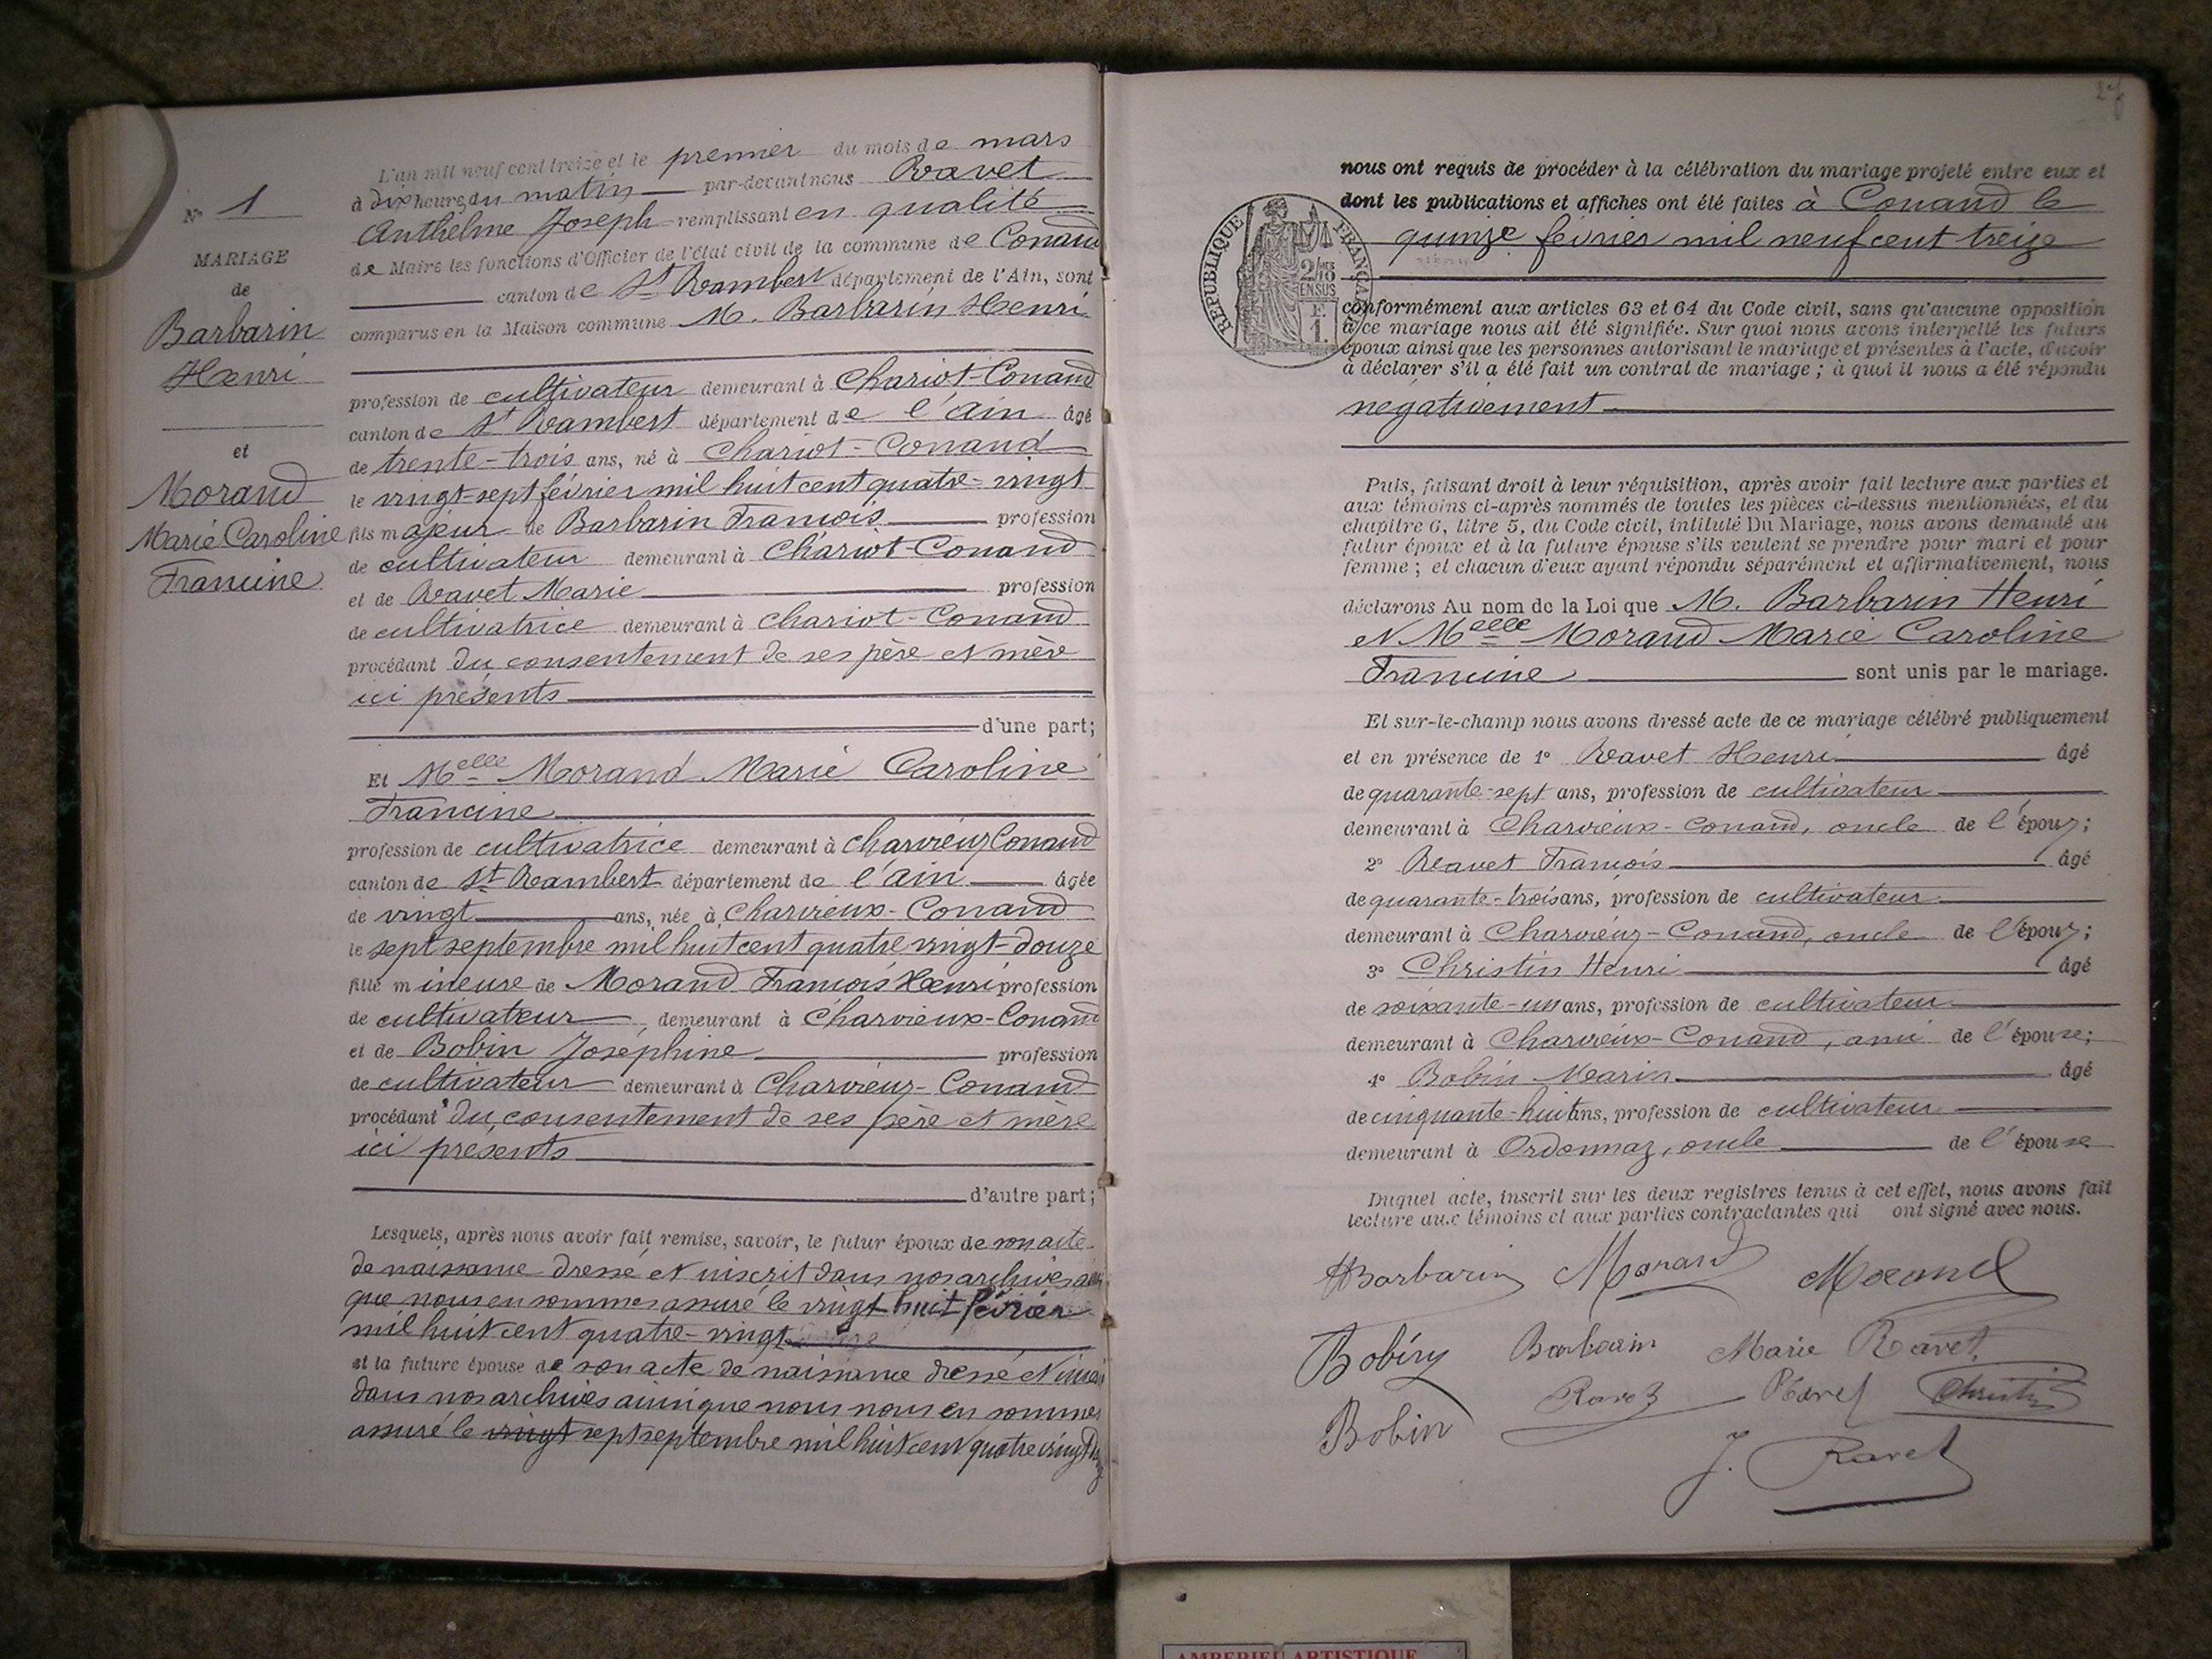 N° 1
MARIAGE
de
Barbarin
Henri
et
Morand
Marie Caroline
Francine
L'an mil neuf cent treize et le premier du mois de mars
à dix heures du matin par-devant nous Ravet
Anthelme Joseph remplissant en qualité
de Maire les fonctions d'Officier de l'état civil de la commune de Conand
canton de St Rambert département de l'Ain, sont
comparus en la Maison commune M. Barbarin Henri
profession de cultivateur demeurant à Chariot-Conand
canton de St Rambert département de l'Ain âgé
de trente-trois ans, né à Chariot-Conand
le vingt-sept février mil huit cent quatre-vingt
fils majeur de Barbarin François profession
de cultivateur demeurant à Chariot-Conand
et de Ravet Marie profession
de cultivatrice demeurant à Chariot-Conand
procédant du consentement de ses père et mère
ici présents
d'une part;
Et Melle Morand Marie Caroline
Francine
profession de cultivatrice demeurant à Charvieux Conand
canton de St Rambert département de l'Ain âgée
de vingt ans, née à Charvieux-Conand
le sept septembre mil huit cent quatre vingt-douze
fille mineure de Morand François Henri profession
de cultivateur, demeurant à Charvieux-Conand
et de Bobin Joséphine profession
de cultivateur demeurant à Charvieux-Conand
procédant du consentement de ses père et mère
ici présents
d'autre part;
Lesquels, après nous avoir fait remise, savoir, le futur époux de son acte
de naissance dressé et inscrit dans nos archives ainsi
que nous en sommes assuré le vingt huit février
mil huit cent quatre-vingt
et la future épouse de son acte de naissance dressé et inscrit
dans nos archives ainsi que nous nous en sommes
assuré le vingt sept septembre mil huit cent quatre vingt douze
27
RÉPUBLIQUE FRANÇAISE
2/10
EN SUS
F.
1.
nous ont requis de procéder à la célébration du mariage projeté entre eux et
dont les publications et affiches ont été faites à Conand le
quinze février mil neuf cent treize
conformément aux articles 63 et 64 du Code civil, sans qu'aucune opposition
à ce mariage nous ait été signifiée. Sur quoi nous avons interpellé les futurs
époux ainsi que les personnes autorisant le mariage et présentes à l'acte, d'avoir
à déclarer s'il a été fait un contrat de mariage; à quoi il nous a été répondu
négativement
Puis, faisant droit à leur réquisition, après avoir fait lecture aux parties et
aux témoins ci-après nommés de toutes les pièces ci-dessus mentionnées, et du
chapitre 6, titre 5, du Code civil, intitulé Du Mariage, nous avons demandé au
futur époux et à la future épouse s'ils veulent se prendre pour mari et pour
femme; et chacun d'eux ayant répondu séparément et affirmativement, nous
déclarons Au nom de la Loi que M. Barbarin Henri
et Melle Morand Marie Caroline
Francine sont unis par le mariage.
Et sur-le-champ nous avons dressé acte de ce mariage célébré publiquement
et en présence de 1° Ravet Henri âgé
de quarante-sept ans, profession de cultivateur
demeurant à Charvieux-Conand, oncle de l'époux;
2° Ravet François âgé
de quarante-trois ans, profession de cultivateur
demeurant à Charvieux-Conand, oncle de l'époux;
3° Christin Henri âgé
de soixante-un ans, profession de cultivateur
demeurant à Charvieux-Conand, ami de l'épouse;
4° Bobin Marin âgé
de cinquante-huit ans, profession de cultivateur
demeurant à Ordonnaz, oncle de l'épouse
Duquel acte, inscrit sur les deux registres tenus à cet effet, nous avons fait
lecture aux témoins et aux parties contractantes qui ont signé avec nous.
HBarbarin Morand Morand
Bobin Barbarin Marie Ravet
Ravet Ravet Christin
Bobin
J. Ravet
AMBERIEU ARTISTIQUE